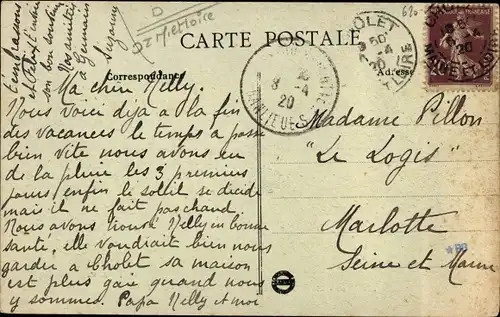 D
DZ Memoire
CARTE POSTALE
Correspondance
Adresse
Ma chère Nelly.
Nous voici déja a la fin
des vacances le temps a passé
bien vite nous avons eu
de la pluie les 3 premiers
jours enfin le soleil se décide
mais il ne fait pas chaud
Nous avons trouvé Nelly en bonne
santé, elle voudrait bien nous
garder a Cholet sa maison
est plus gaie quand nous
y sommes. Papa Nelly et moi
t'embrassons
et
son bon souvenir
Nos amitiés
à Germain
Suzanne
Madame Pillon
"Le Logis"
Marlotte
Seine et Marne
CHOLET
MAINE ET LOIRE
8 -4
20
BB